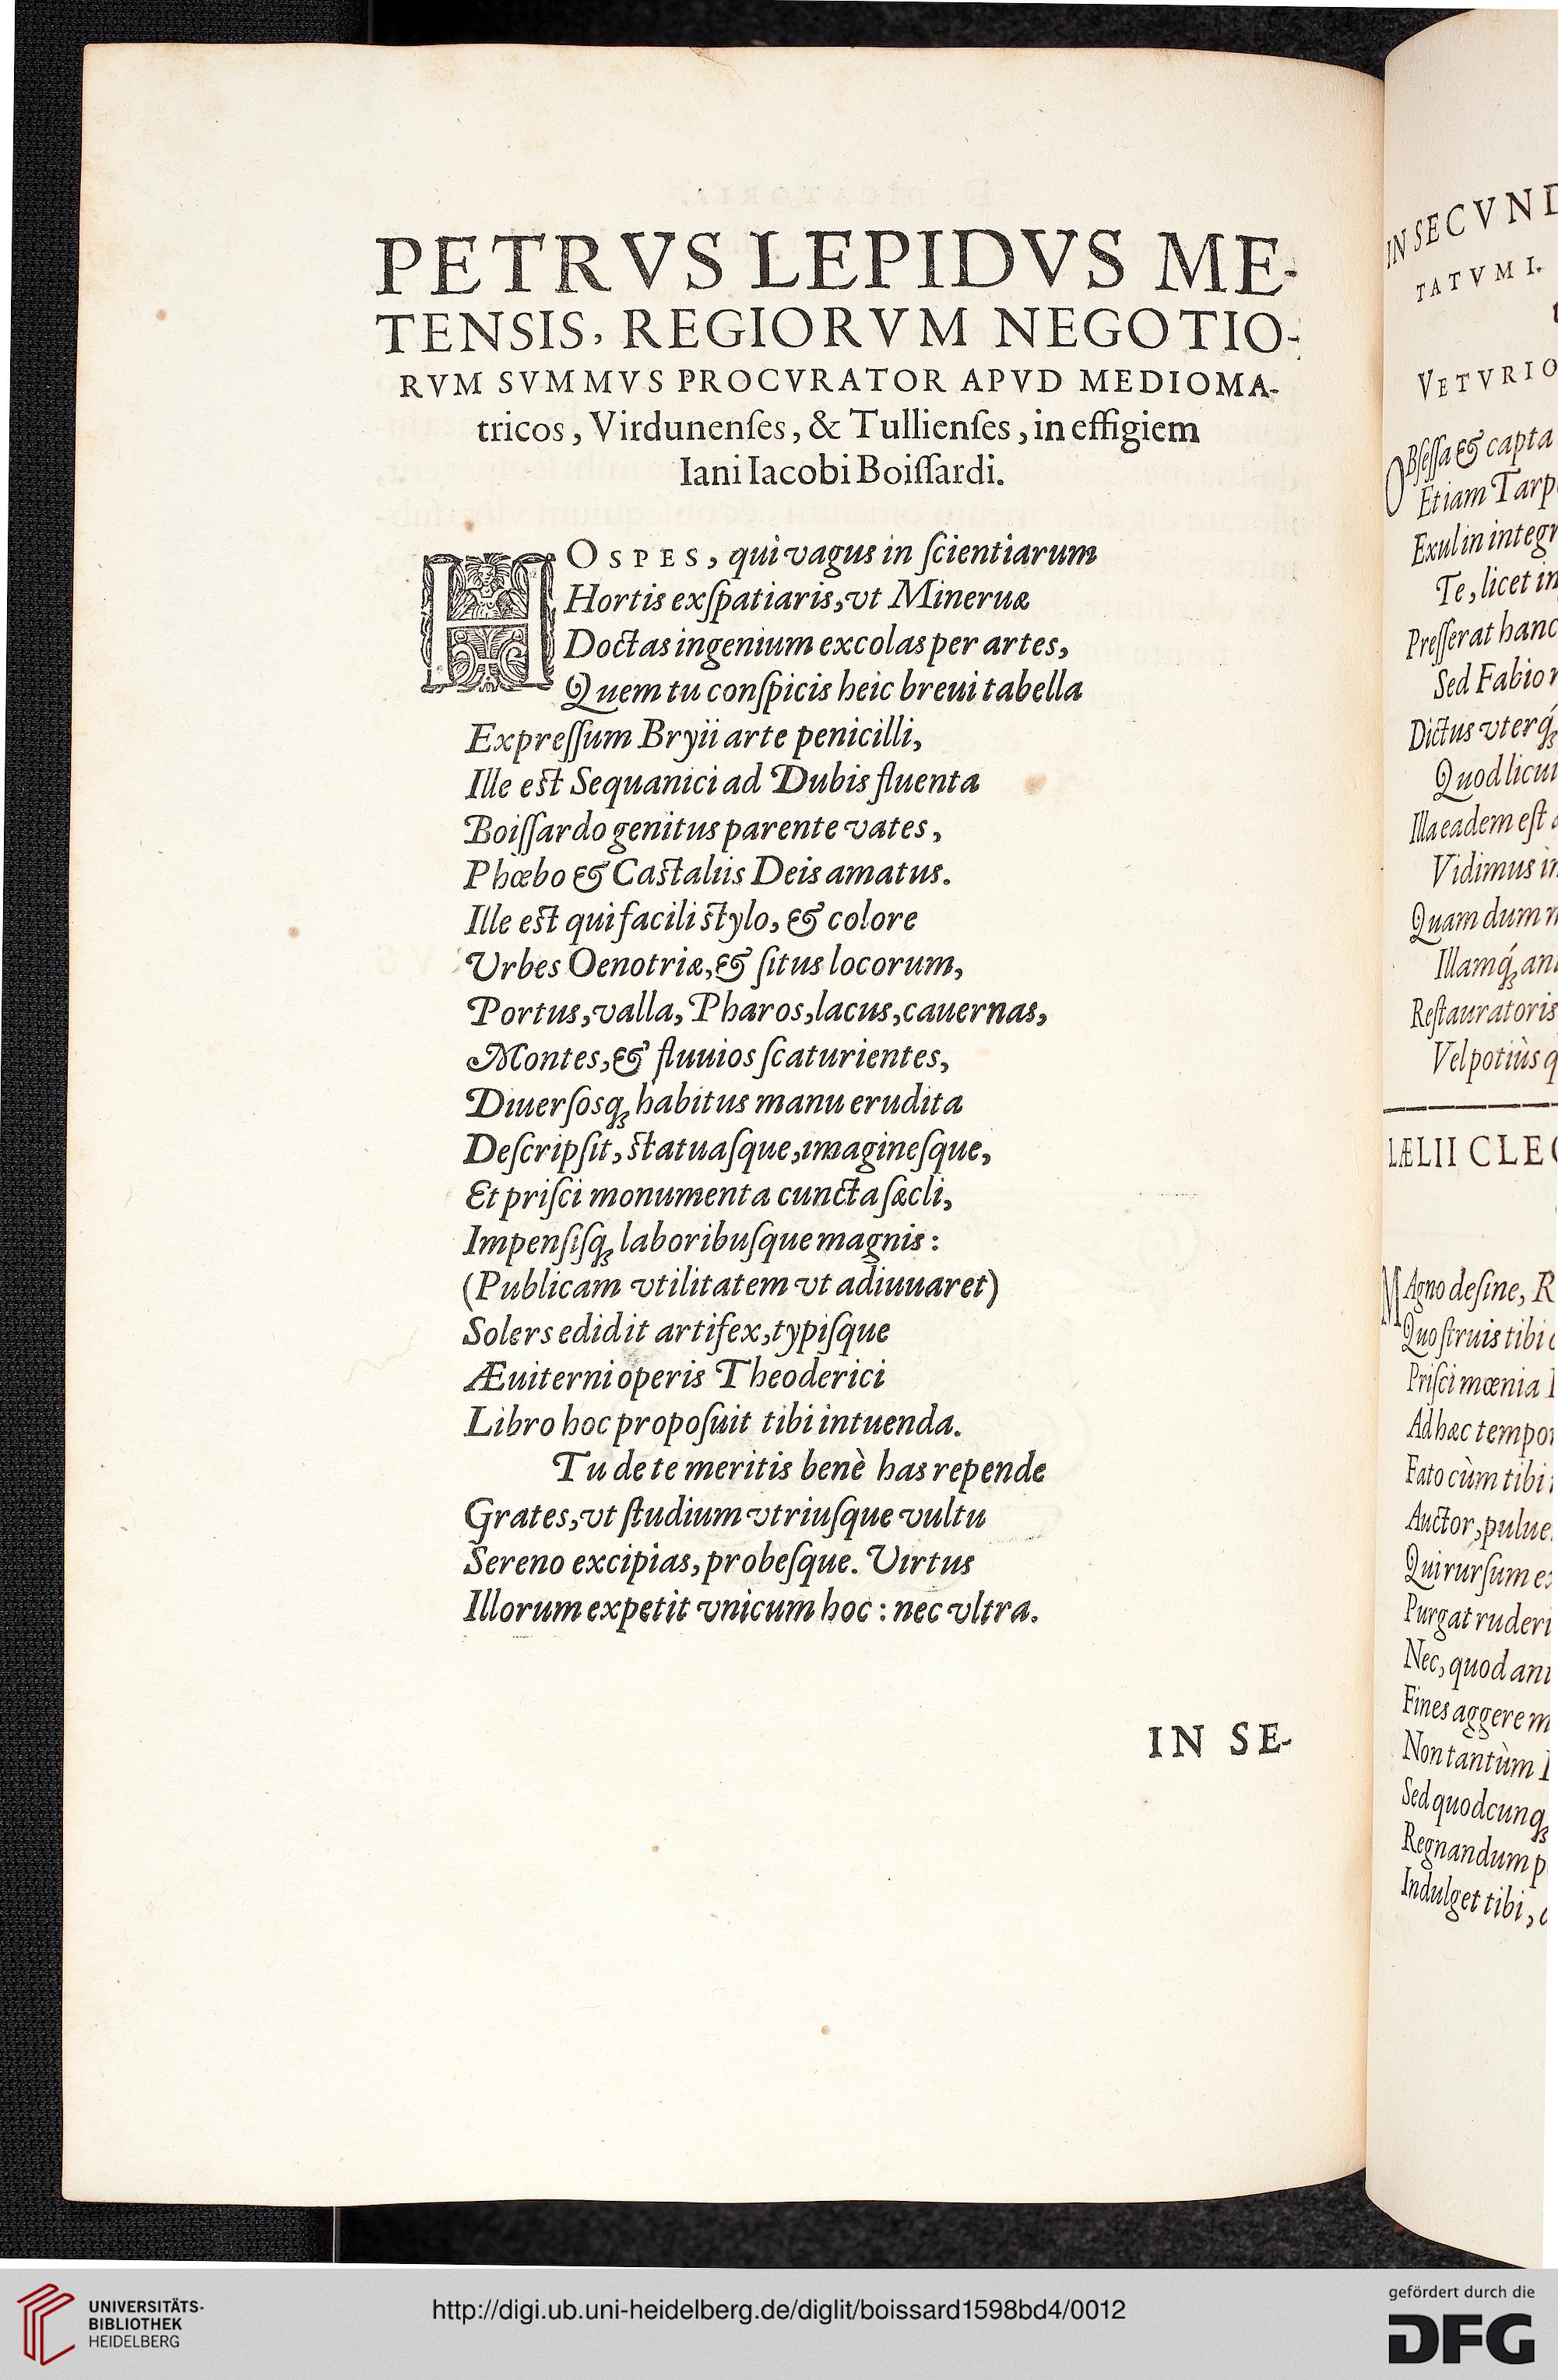 PETRVS LEPIDVS ME-
TENSIS, REGIORVM NEGOTIO-
RVM SVMMVS PROCVRATOR APVD MEDIOMA-
tricos, Virdunenſes, & Tullienſes, in effigiem
Iani Iacobi Boiſſardi.
HOSPES, qui vagus in ſcientiarum
Hortis exſpatiaris, vt Mineruæ
Doctas ingenium excolas per artes,
Quem tu conſpicis heic breui tabella
Expreſſum Bryii arte penicilli,
Ille eſt Sequanici ad Dubis fluenta
Boiſſardo genitus parente vates,
Phœbo & Caſtaliis Deis amatus.
Ille eſt qui facili ſtylo, & colore
Vrbes Oenotriæ, & ſitus locorum,
Portus, valla, Pharos, lacus, cauernas,
Montes, & fluuios ſcaturientes,
Diuerſosq; habitus manu erudita
Deſcripſit, ſtatuaſque, imagineſque,
Et priſci monumenta cuncta ſæcli,
Impenſiſq; laboribuſque magnis:
(Publicam vtilitatem vt adiuuaret)
Solers edidit artifex, typiſque
Æuiterni operis Theoderici
Libro hoc propoſuit tibi intuenda.
Tu de te meritis benè has repende
Grates, vt ſtudium vtriuſque vultu
Sereno excipias, probeſque. Virtus
Illorum expetit vnicum hoc: nec vltra.
IN SE-
IN SECVND
TATVM I.
VETVRIO
OBſeſſa & capta
Etiam Tarp
Exul in integr
Te, licet in
Preſſerat hanc
Sed Fabior
Dictus vterq́;
Quod licui
Illa eadem eſt
Vidimus in
Quam dum
Illamq́; ani
Reſtauratoris
Vel potiùs q
LÆLII CLE
MAgno deſine, R
Quo ſtruis tibi
Priſci mœnia
Ad hæc tempor
Fato cùm tibi
Auctor, pulue
Qui rurſum e
Purgat ruderi
Nec, quod ani
Fines aggere m
Non tantùm
Sed quodcunq;
Regnandum p
Indulget tibi,
UNIVERSITÄTS-
BIBLIOTHEK
HEIDELBERG
http://digi.ub.uni-heidelberg.de/diglit/boissard1598bd4/0012
gefördert durch die
DFG